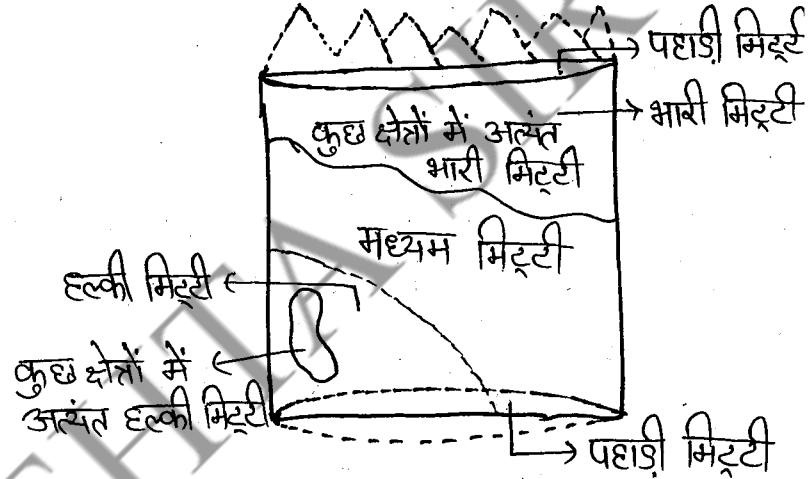 पहाड़ी मिट्टी
भारी मिट्टी
कुछ क्षेत्रों में अत्यंत
भारी मिट्टी
मध्यम मिट्टी
हल्की मिट्टी
कुछ क्षेत्रों में
अत्यंत हल्की मिट्टी
पहाड़ी मिट्टी